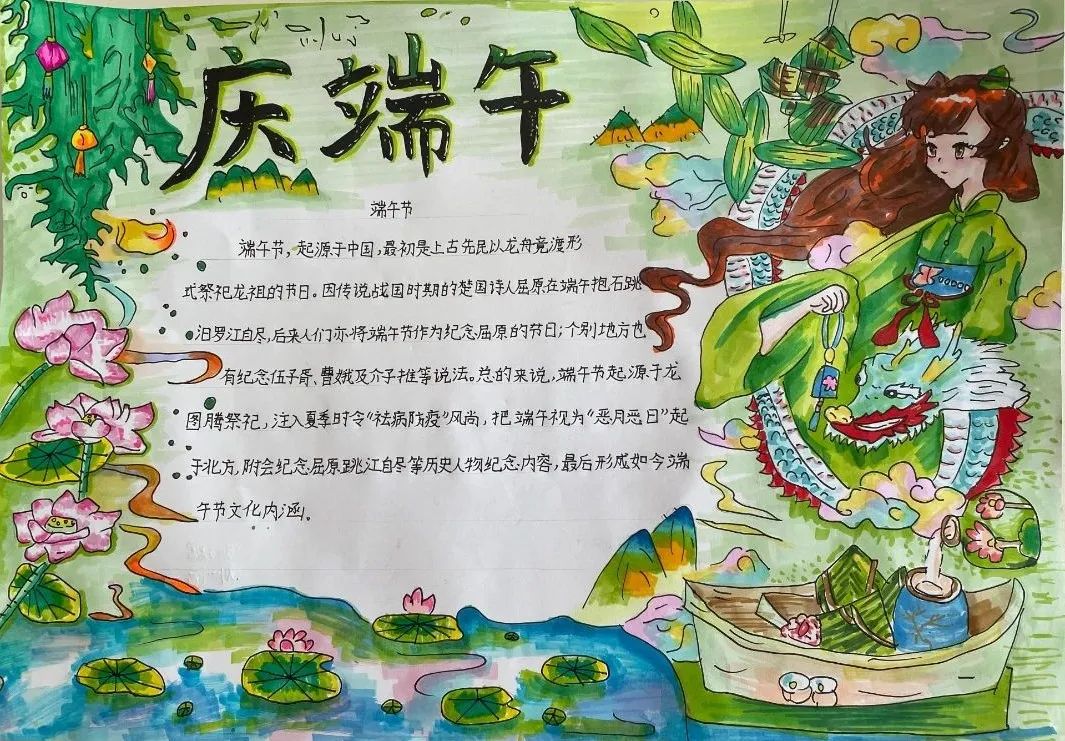 庆端午
端午节
端午节，起源于中国，最初是上古先民以龙舟竞渡形
式祭祀龙祖的节日。因传说战国时期的楚国诗人屈原在端午抱石跳
汨罗江自尽，后来人们亦将端午节作为纪念屈原的节日；个别地方也
有纪念伍子胥、曹娥及介子推等说法。总的来说，端午节起源于龙
图腾祭祀，注入夏季时令“祛病防疫”风尚，把端午视为“恶月恶日”起
于北方，附会纪念屈原跳江自尽等历史人物纪念内容，最后形成如今端
午节文化内涵。